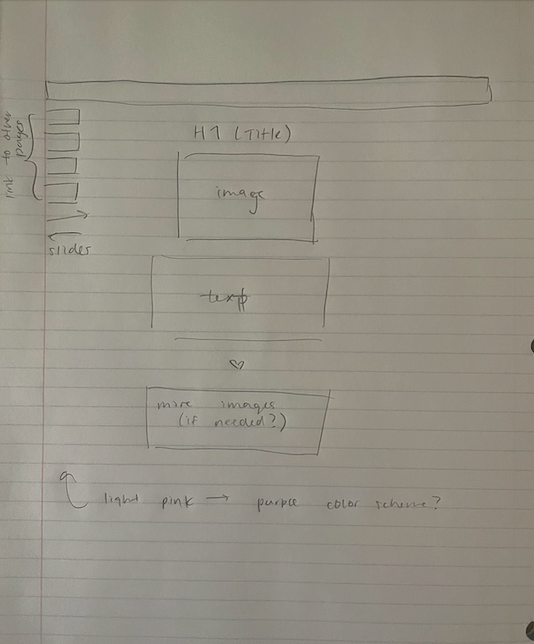 link to other
pages
H1 (Title)
image
slides
text
more images
(if needed?)
light pink → purple color scheme?